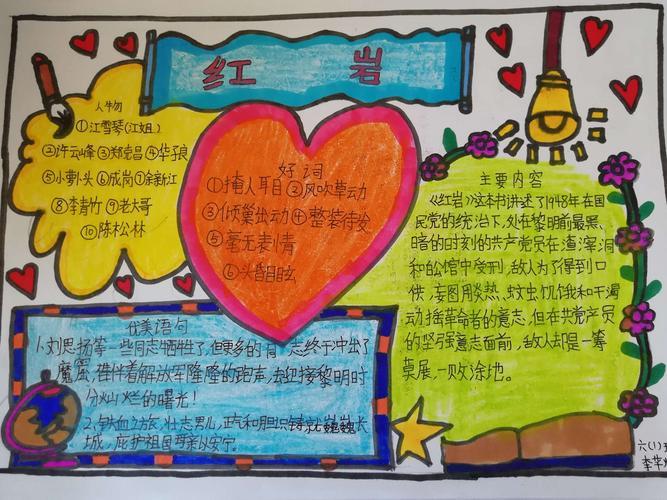 红 岩
人物
①江雪琴(江姐)
②许云峰③郑克昌④华子良
⑤小萝卜头⑥成岗⑦余新江
⑧李青竹⑨老大哥
⑩陈松林
好词
①掩人耳目②风吹草动
③倾巢出动④整装待发
⑤毫无表情
⑥头昏目眩
主要内容
《红岩》这本书讲述了1948年在国
民党的统治下,处在黎明前最黑
暗的时刻的共产党员在渣滓洞
和白公馆中受刑,敌人为了得到口
供,妄图用炎热,蚊虫饥饿和干渴
动摇革命者的意志,但在共产党员
的坚强意志面前,敌人却是一筹
莫展,一败涂地。
优美语句
1.刘思扬等一些同志牺牲了,但更多的同志终于冲出了
魔窟,伴着解放军隆隆的跑声,去迎接黎明时
分火山烂的曙光!
2、铁血之旅,壮志男儿,正气和胆识铸就巍巍长
城,庇护祖国母亲以安宁。
六(1)
李